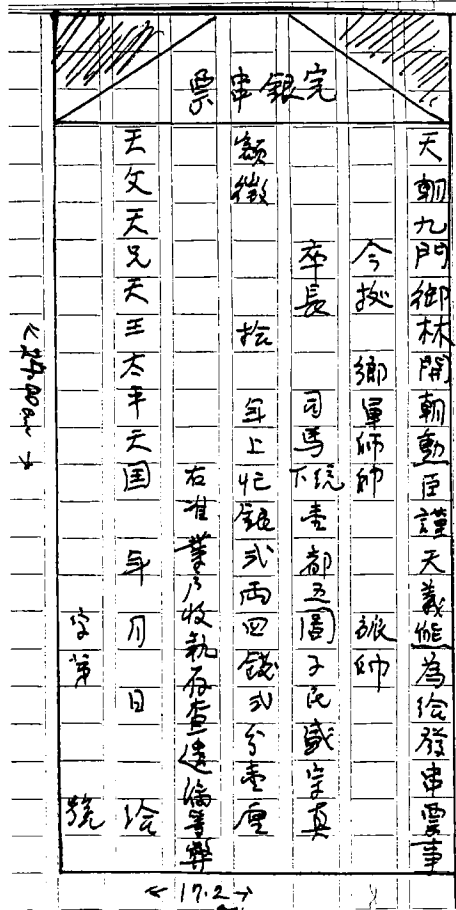 完銀串票
天朝九門御林開朝勳臣謹天義熊為給發串票事
今据 鄉軍師帥 旅帥
卒長 司馬下统壹都五圖子民戚宗真
額徵 拾 年上忙銀弍両四錢弍分壹厘
右准業户收執存查遺
天父天兄天王太平天国 年 月 日 给
字第 號
17.2